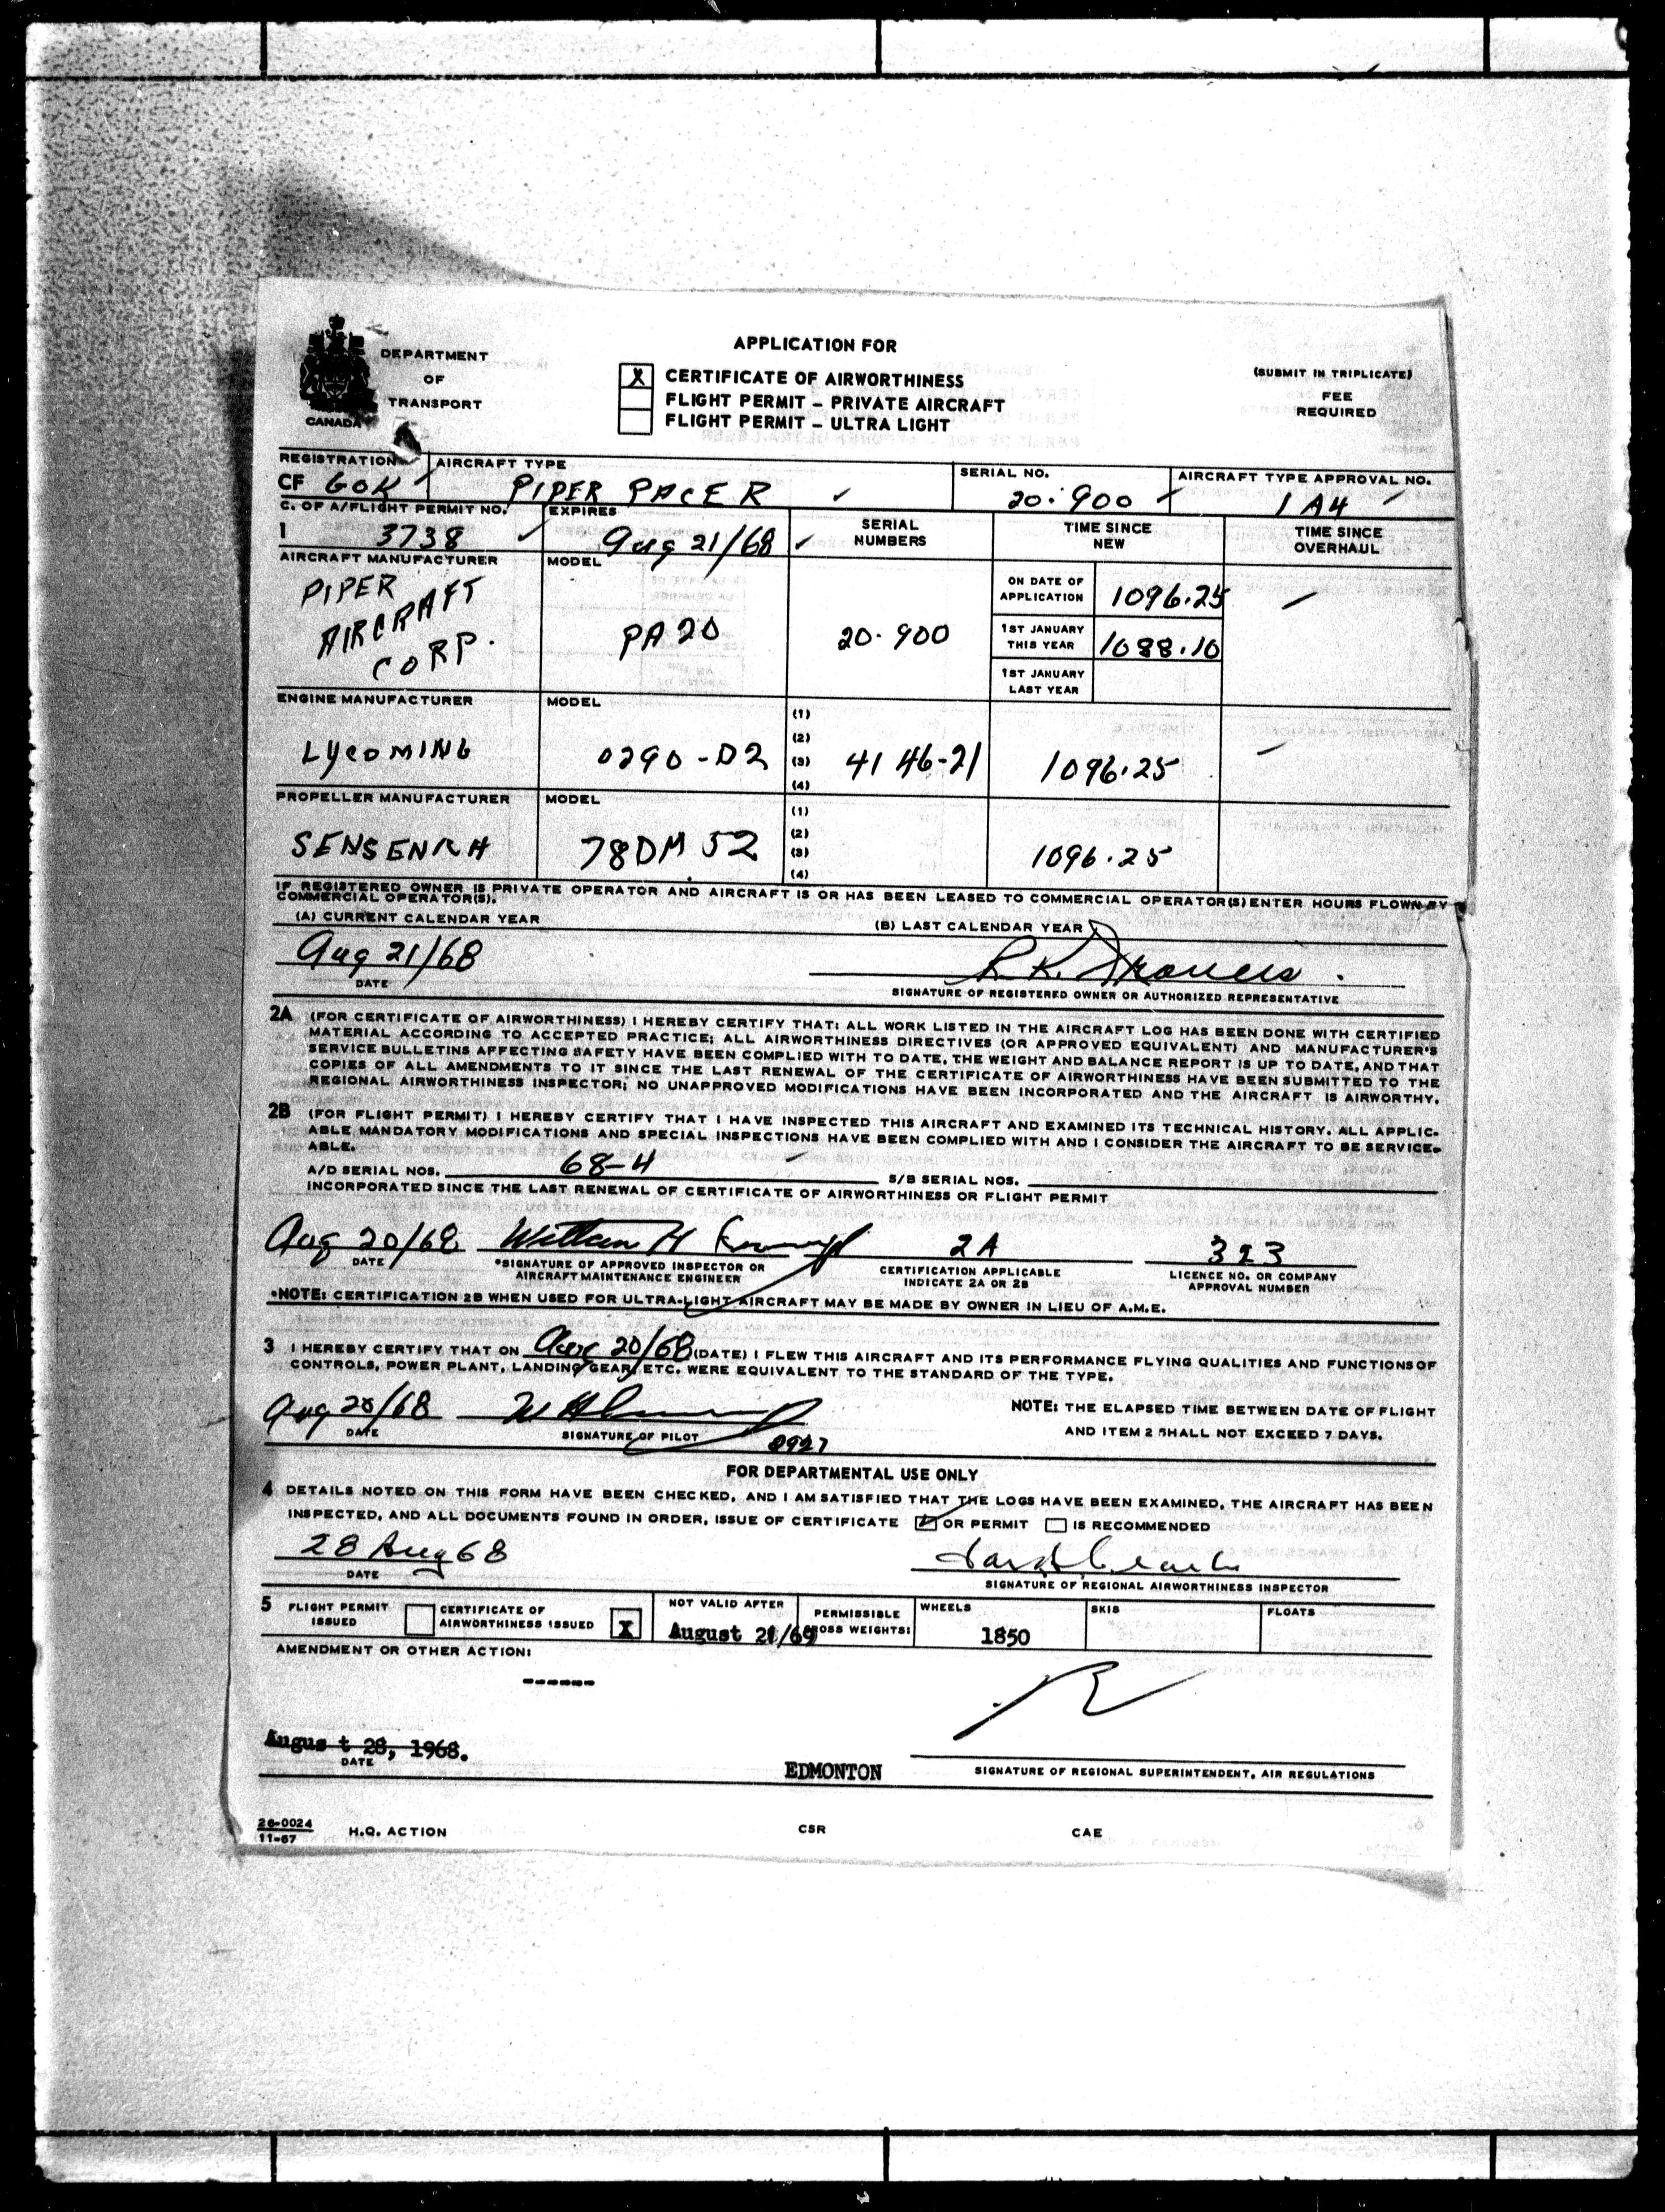 DEPARTMENT
OF
TRANSPORT
CANADA
APPLICATION FOR
X CERTIFICATE OF AIRWORTHINESS
FLIGHT PERMIT – PRIVATE AIRCRAFT
FLIGHT PERMIT – ULTRA LIGHT
(SUBMIT IN TRIPLICATE)
FEE
REQUIRED
REGISTRATION AIRCRAFT TYPE SERIAL NO. AIRCRAFT TYPE APPROVAL NO.
CF GOK PIPER PACER 20·900 1 A4
C. OF A/FLIGHT PERMIT NO. EXPIRES SERIAL NUMBERS TIME SINCE NEW TIME SINCE OVERHAUL
1 3738 Aug 21/68
AIRCRAFT MANUFACTURER MODEL
PIPER AIRCRAFT CORP. PA 20 20·900
ON DATE OF APPLICATION 1096.25 –
1ST JANUARY THIS YEAR 1088.10
1ST JANUARY LAST YEAR
ENGINE MANUFACTURER MODEL
LYCOMING 0290-D2 (1) (2) (3) (4) 4146-21 1096.25 –
PROPELLER MANUFACTURER MODEL
SENSENICH 78DM 52 (1) (2) (3) (4) 1096.25
IF REGISTERED OWNER IS PRIVATE OPERATOR AND AIRCRAFT IS OR HAS BEEN LEASED TO COMMERCIAL OPERATOR(S) ENTER HOURS FLOWN BY
COMMERCIAL OPERATOR(S).
(A) CURRENT CALENDAR YEAR (B) LAST CALENDAR YEAR
Aug 21/68 R.K.
DATE SIGNATURE OF REGISTERED OWNER OR AUTHORIZED REPRESENTATIVE
2A (FOR CERTIFICATE OF AIRWORTHINESS) I HEREBY CERTIFY THAT: ALL WORK LISTED IN THE AIRCRAFT LOG HAS BEEN DONE WITH CERTIFIED
MATERIAL ACCORDING TO ACCEPTED PRACTICE; ALL AIRWORTHINESS DIRECTIVES (OR APPROVED EQUIVALENT) AND MANUFACTURER'S
SERVICE BULLETINS AFFECTING SAFETY HAVE BEEN COMPLIED WITH TO DATE, THE WEIGHT AND BALANCE REPORT IS UP TO DATE, AND THAT
COPIES OF ALL AMENDMENTS TO IT SINCE THE LAST RENEWAL OF THE CERTIFICATE OF AIRWORTHINESS HAVE BEEN SUBMITTED TO THE
REGIONAL AIRWORTHINESS INSPECTOR; NO UNAPPROVED MODIFICATIONS HAVE BEEN INCORPORATED AND THE AIRCRAFT IS AIRWORTHY.
2B (FOR FLIGHT PERMIT) I HEREBY CERTIFY THAT I HAVE INSPECTED THIS AIRCRAFT AND EXAMINED ITS TECHNICAL HISTORY. ALL APPLIC-
ABLE MANDATORY MODIFICATIONS AND SPECIAL INSPECTIONS HAVE BEEN COMPLIED WITH AND I CONSIDER THE AIRCRAFT TO BE SERVICE-
ABLE.
A/D SERIAL NOS. 68-4 S/B SERIAL NOS.
INCORPORATED SINCE THE LAST RENEWAL OF CERTIFICATE OF AIRWORTHINESS OR FLIGHT PERMIT
Aug 20/68 William H 2A 323
DATE *SIGNATURE OF APPROVED INSPECTOR OR AIRCRAFT MAINTENANCE ENGINEER CERTIFICATION APPLICABLE INDICATE 2A OR 2B LICENCE NO. OR COMPANY APPROVAL NUMBER
*NOTE: CERTIFICATION 2B WHEN USED FOR ULTRA-LIGHT AIRCRAFT MAY BE MADE BY OWNER IN LIEU OF A.M.E.
3 I HEREBY CERTIFY THAT ON Aug 20/68 (DATE) I FLEW THIS AIRCRAFT AND ITS PERFORMANCE FLYING QUALITIES AND FUNCTIONS OF
CONTROLS, POWER PLANT, LANDING GEAR, ETC. WERE EQUIVALENT TO THE STANDARD OF THE TYPE.
Aug 20/68 W H
DATE SIGNATURE OF PILOT
NOTE: THE ELAPSED TIME BETWEEN DATE OF FLIGHT
AND ITEM 2 SHALL NOT EXCEED 7 DAYS.
FOR DEPARTMENTAL USE ONLY
4 DETAILS NOTED ON THIS FORM HAVE BEEN CHECKED, AND I AM SATISFIED THAT THE LOGS HAVE BEEN EXAMINED, THE AIRCRAFT HAS BEEN
INSPECTED, AND ALL DOCUMENTS FOUND IN ORDER, ISSUE OF CERTIFICATE OR PERMIT IS RECOMMENDED
28 Aug 68
DATE SIGNATURE OF REGIONAL AIRWORTHINESS INSPECTOR
5 FLIGHT PERMIT ISSUED CERTIFICATE OF AIRWORTHINESS ISSUED X NOT VALID AFTER August 21/69 PERMISSIBLE GROSS WEIGHTS: WHEELS 1850 SKIS FLOATS
AMENDMENT OR OTHER ACTION:
------
August 28, 1968.
DATE
EDMONTON SIGNATURE OF REGIONAL SUPERINTENDENT, AIR REGULATIONS
26-0024
11-67 H.Q. ACTION CSR CAE